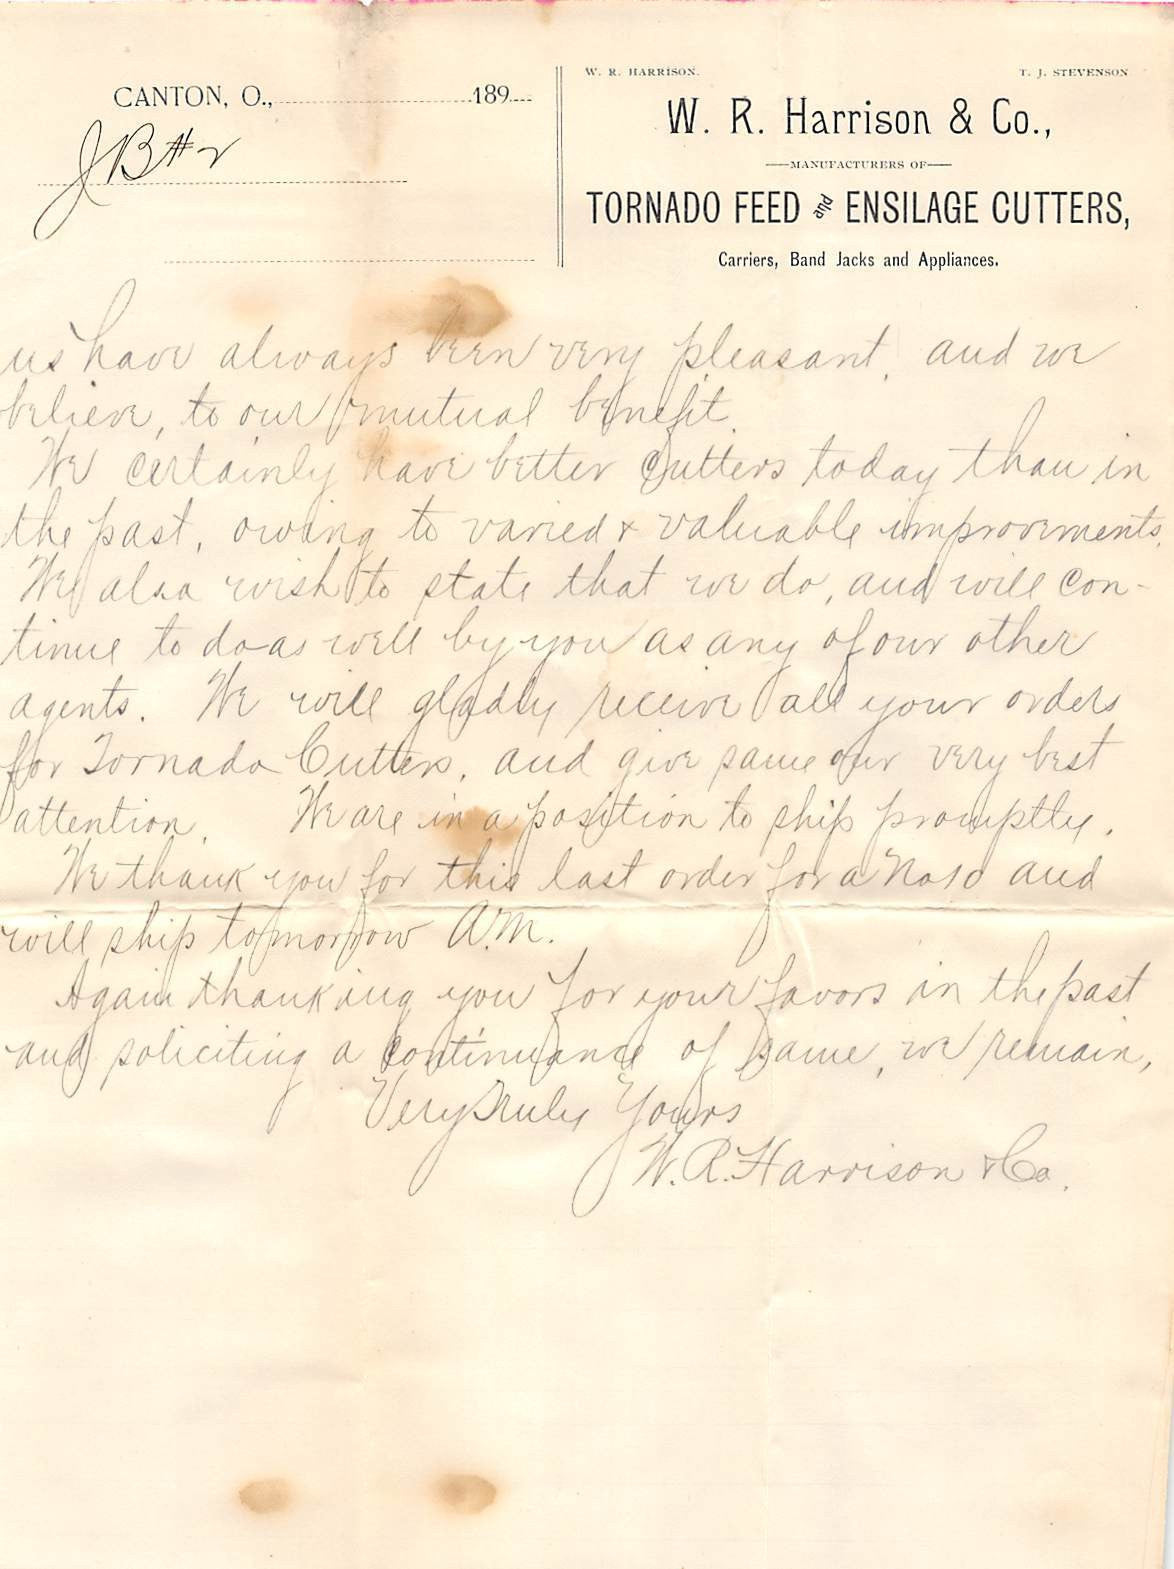 W. R. HARRISON. T. J. STEVENSON
CANTON, O., 189
W. R. Harrison & Co.,
MANUFACTURERS OF
TORNADO FEED and ENSILAGE CUTTERS,
Carriers, Band Jacks and Appliances.
J B # 2
us have always been very pleasant, and we
believe, to our mutual benefit.
We certainly have better Cutters today than in
the past, owing to varied & valuable improvements.
We also wish to state that we do, and will con-
tinue to do as well by you as any of our other
agents. We will gladly receive all your orders
for Tornado Cutters, and give same our very best
attention. We are in a position to ship promptly.
We thank you for this last order for a and
will ship tomorrow A.M.
Again thanking you for your favors in the past
and soliciting a continuance of same, we remain,
Very Truly Yours
W. R. Harrison & Co.